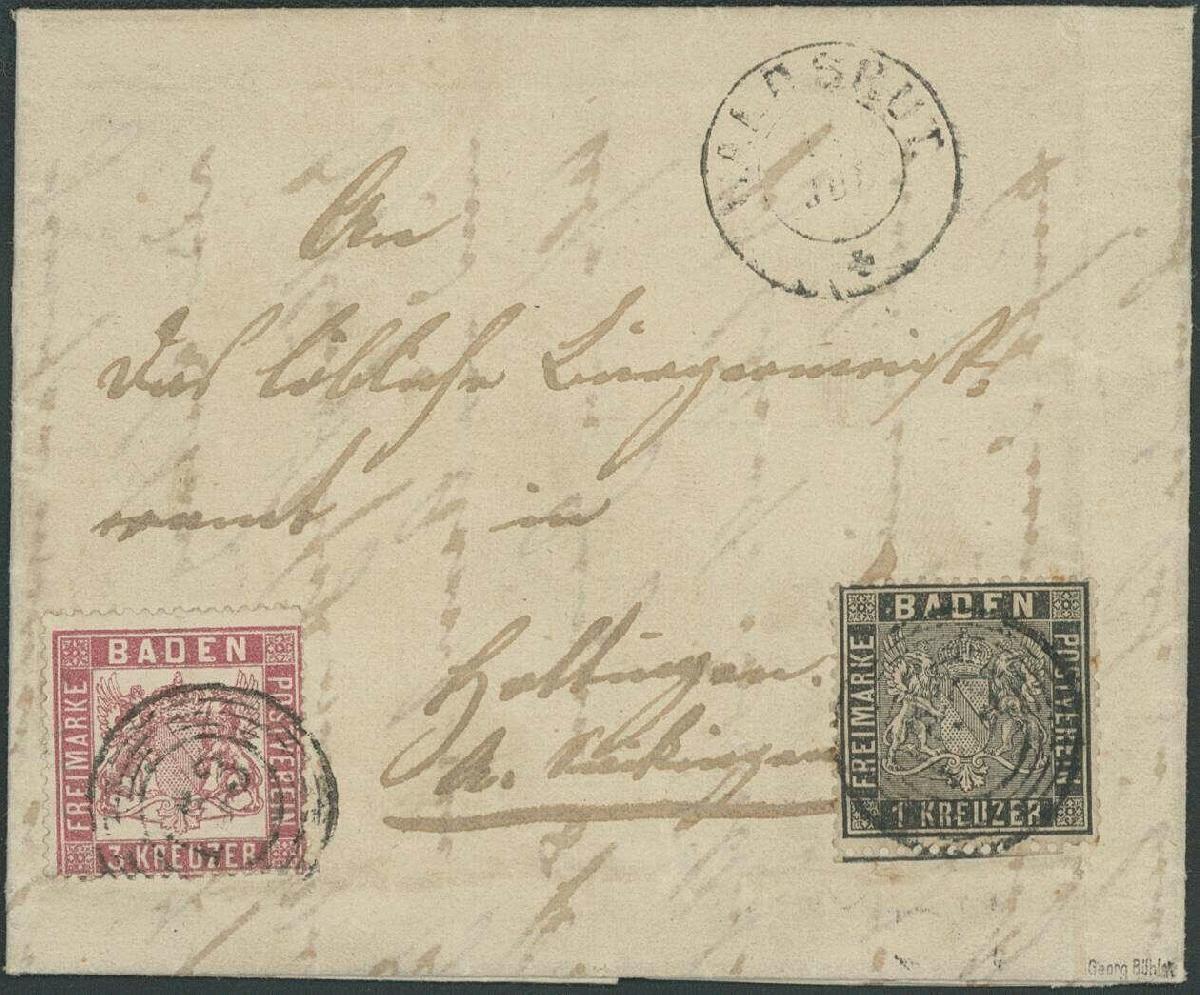 WALDSHUT
JUL
An
Das löbliche Bürgermeister
amt in
Hottingen.
A. Säckingen
BADEN
FREIMARKE
POSTVEREIN
3 KREUZER
BADEN
FREIMARKE
POSTVEREIN
1 KREUZER
Georg Bühler